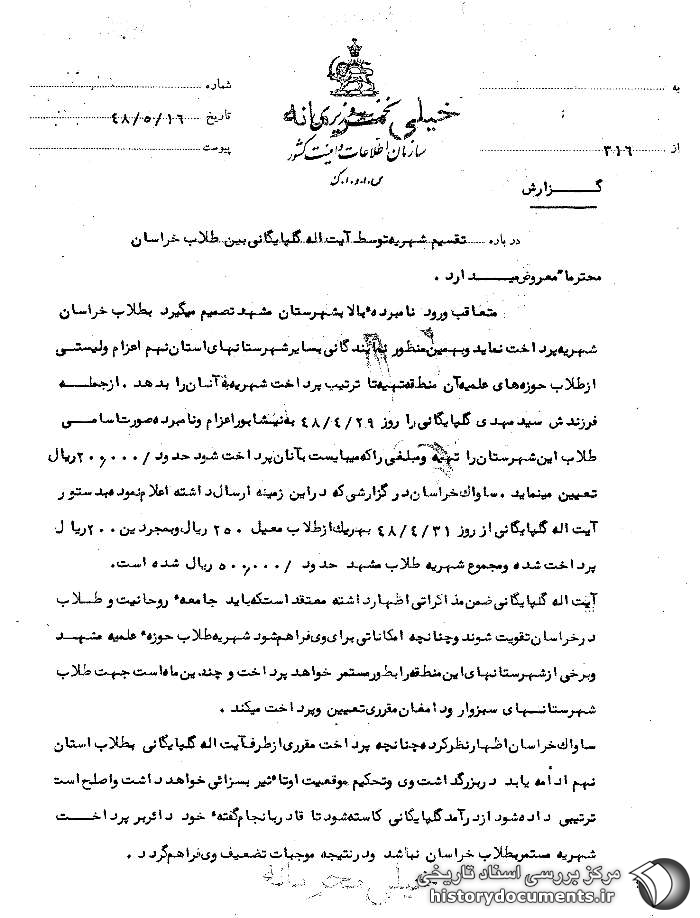 به
شماره
خیلی محرمانه
نخست وزیری
تاریخ ۴۸/۵/۱۶
سازمان اطلاعات و امنیت کشور
از ۳۱۶
پیوست
س.ا.و.ا.ک
گزارش
درباره تقسیم شهریه توسط آیت اله گلپایگانی بین طلاب خراسان
محترما" معروض میدارد .
متعاقب ورود نامبرده بالا بشهرستان مشهد تصمیم میگیرد بطلاب خراسان
شهریه پرداخت نماید و بهمین منظور نمایندگانی بسایر شهرستانهای استان نهم اعزام ولیستی
از طلاب حوزه های علمیه آن منطقه تهیه تا ترتیب پرداخت شهریه به آنان را بدهد . از جمله
فرزندش سید مهدی گلپایگانی را روز ۴۸/۴/۲۹ به نیشابور اعزام و نامبرده صورت اسامی
طلاب این شهرستان را تهیه و مبلغی را که میبایست بآنان پرداخت شود حدود /۲۰۰٫۰۰۰ ریال
تعیین مینماید . ساواک خراسان در گزارشی که در این زمینه ارسال داشته اعلام نموده بدستور
آیت اله گلپایگانی از روز ۴۸/۴/۳۱ بهریک از طلاب معیل ۲۵۰ ریال و بمجردین ۲۰۰ ریال
پرداخت شده و مجموع شهریه طلاب مشهد حدود /۵۰۰٫۰۰۰ ریال شده است.
آیت اله گلپایگانی ضمن مذاکراتی اظهار داشته معتقد است که باید جامعه روحانیت و طلاب
در خراسان تقویت شوند و چنانچه امکاناتی برای وی فراهم شود شهریه طلاب حوزه علمیه مشهد
و برخی از شهرستانهای این منطقه را بطور مستمر خواهد پرداخت و چندین ماه است جهت طلاب
شهرستانهای سبزوار و دامغان مقرری تعیین و پرداخت میکند .
ساواک خراسان اظهار نظر کرده چنانچه پرداخت مقرری از طرف آیت اله گلپایگانی بطلاب استان
نهم ادامه یابد در بزرگداشت وی و تحکیم موقعیت او تاثیر بسزائی خواهد داشت و اصلح است
ترتیبی داده شود از درآمد گلپایگانی کاسته شود تا قادر بانجام گفته خود دائر بر پرداخت
شهریه مستمر بطلاب خراسان نباشد و در نتیجه موجبات تضعیف وی فراهم گردد .
خیلی محرمانه
مرکز بررسی اسناد تاریخی
historydocuments.ir